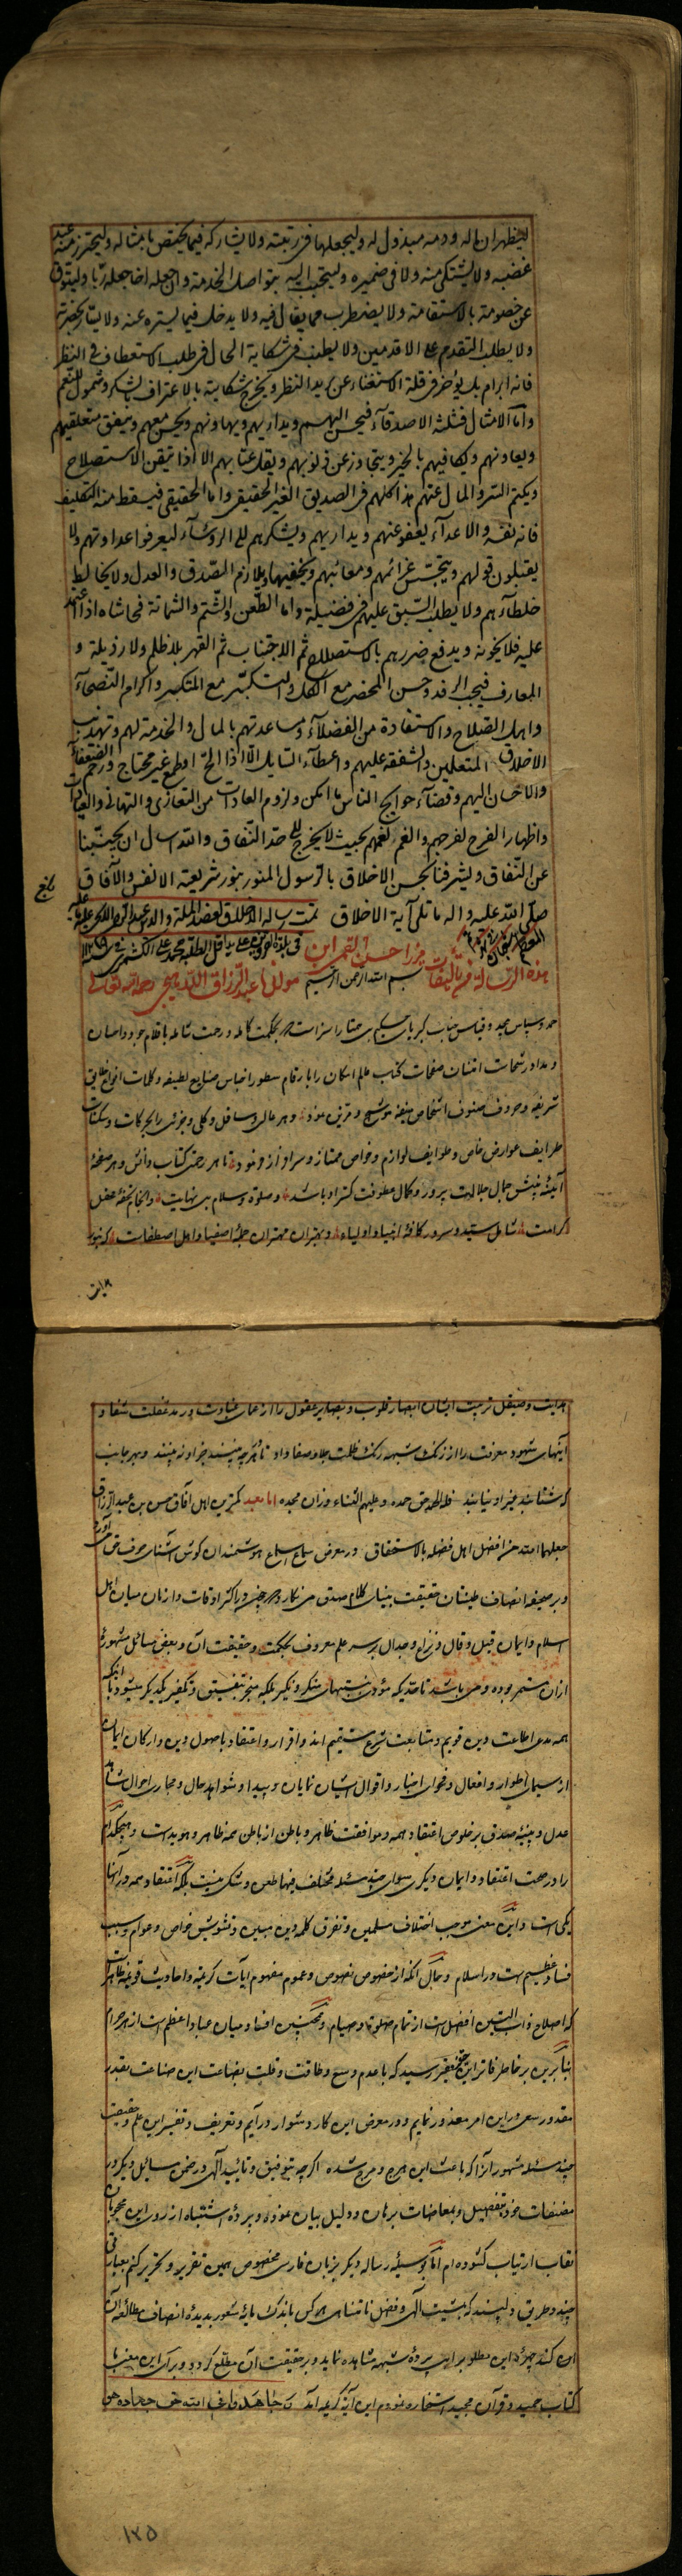 ليظهر ان ماله ودمه مبذول له وليجعلها في رتبته ولا يشاركه فيما يختص بامثاله وليحترز منه عند
غضبه ولا يشتكي منه ولا في ضميره وليتحبب اليه بتواصل الخدمة وان جعله اخا جعله ربا وليتوق
عن خصومته بالاستقامة ولا يضطرب مما يقال فيه ولا يدخل فيما يستره عنه ولا يسار بحضرته
ولا يطلب التقدم على الاقدمين ولا يطنب في شكاية الحال في طلب الاستعطاف في النظر
فانه ابرام بل يؤخر في قلة الاستغناء عن مزيد النظر ويخرج شكايته بالاعتراف بالشكر وشمول النعم
واما الامثال فثلثة الاصدقاء فيحسن اليهم ويداريهم ويهاونهم ويحسن معهم وينفق متعلقيهم
ويعاونهم ويكافيهم بالخير ويتجاوز عن ذنوبهم ويقل عتابهم الا اذا تيقن الاستصلاح
ويكتم السر والمال عنهم هذا كلهم في الصديق الغير الحقيقي واما الحقيقي فيسقط منه التكليف
فانه نفسه والاعداء يعفو عنهم ويداريهم ويشكرهم الى الرؤساء ليعرفوا عداوتهم ولا
يقبلون قولهم ويتجسس عزائمهم ومعائبهم ويخفيها ويلازم الصدق والعدل ولا يخالط
خلطاءهم ولا يطلب السبق عليهم في فضيلة واما الطعن والشتم والشماتة فحاشاه اذا اعتمد
عليه فلا يخونه ويدفع ضررهم بالاستصلاح ثم الاجتناب ثم القهر بلا ظلم ولا رذيلة و
المعارف فيجب الرفد وحسن المحضر مع الكل والتكبر مع المتكبر واكرام النصحاء
واهل الصلاح والاستفادة من الفضلاء ومساعدتهم بالمال والخدمة لهم وتهذيب
الاخلاق المتعلمين والشفقة عليهم واعطاء السايل الا اذا الح او طمع غير محتاج ورحم الضعفاء
والاحسان اليهم وقضاء حوايج الناس ما امكن ولزوم العادات من التعازي والتهاني والعيادات
واظهار الفرح لفرحهم والغم لغمهم بحيث لا يخرج الى حد النفاق والله اسال ان يجنبنا
عن النفاق ويشرفنا بحسن الاخلاق بالرسول المنور بنور شريعته الانفس والآفاق
بلغ
صلى الله عليه وآله ما تلي آية الاخلاق تمت رسالة الاخلاق لعضد الملة والدين عبد الرحمن
هذه الرسالة من تأليفات ميرزا حسن القمي ابن مولانا عبد الرزاق اللاهيجي رحمه الله تعالى
بسم الله الرحمن الرحيم
حمد وسپاس بيحد وقياس جناب كبرياى حكيم بى همتا را سزاست كه بحكمت كامله ورحمت شامله باقلام جود واحسان
ومداد رشحات امتنان صفحات كتب عالم امكان را بارقام سطور اجناس صنايع لطيفه وكلمات انواع خلايق
شريفه وحروف صنوف اشخاص منيفه موشح ومزين نمود وهر عالى وسافل وكلى وجزوى را بحركات وسكنات
طرايف عوارض خاص وطوايف لوازم وخواص ممتاز وسرافراز فرمود تا هر رخى كتاب دانش وهر صفحه
آينه بينش جمال جلالت پرور وكمال معرفت كستر او باشد وصلوة وسلام بى نهايت
كرامت شامل سيد وسرور كافه انبيا واولياء وبهتران مهتران جمله اصفيا واهل اصطفاست كه بنور
هدايت وصيقل تربيت ايشان ابصار قلوب وبصاير عقول را از عماى غباوت ورمد غفلت شفا و
آينهاى شهود معرفت را از زنك شبهه رنك ظلمت جلا وصفا داد تا هر چه بينند جز او نه بينند وبهر جانب
كه شتابند غير او نيابند فله الحمد حق حمده وعليهم الثناء وزان مجده اما بعد كمترين اهل آفاق حسن بن عبد الرزاق
جعلهما الله من افضل اهل فضله بالاستحقاق در معرض سماع اسماع هوشمندان كوش آشناى حرف حق مى آورد
وبر صحيفه انصاف طينتان حقيقت بينان كلام صدق مى نكارد كه چون در اكثر اوقات وازمان ميان اهل
اسلام وايمان قيل وقال ونزاع وجدال بر سر علم معروف بحكمت وحقيقت آن وبعض مسائل مشهوره
ازان مستمر بوده ومى باشد تا حديكه مؤدى بشبهاى منكر ونكير بلكه منجر بتفسيق وتكفير يكديكر ميشود با اينكه
همه مدعى اطاعت دين قويم ومتابعت شرع مستقيم اند واقرار واعتقاد باصول دين واركان ايمان
از سيماى اطوار وافعال وفحواى اخبار واقوال ايشان نمايان وپيدا وشواهد حال ومجارى احوال شاهد
عدل وبينه صدق بر خلوص اعتقاد همه وموافقت ظاهر وباطن از باطن همه ظاهر وهويداست وهيچكدام
را در صحت اعتقاد وايمان ديكرى سواى چند مسئله مختلف فيها طعن وشكى نيست بلكه اعتقاد همه در آنها
يكى است واين معنى موجب اختلاف مسلمين وتفرق كلمه دين مبين وتشويش خواص وعوام وسبب
فساد عظيم است در اسلام وحال آنكه از خصوص نصوص وعموم مفهوم آيات كريمه واحاديث قويمه ظاهر است
كه اصلاح ذات البين افضل است از تمام صلوة وصيام وهمچنين افساد ميان عباد اعظم است از هر حرام
بنابرين بر خاطر فاتر اين حقير رسيد كه با عدم وسع وطاقت وقلت بضاعت اين صناعت بقدر
مقدور سعى در اين امر معذور نمايم ودر معرض اين كار دشوار درآيم وتعريف وتفسير اين علم وحقيقت
چند مسئله مشهور آنرا كه باعث اين هرج ومرج شده اكرچه بتوفيق وتاييد آلهى در ضمن مسائل ديكر در
مصنفات خود بتفصيل وبمعاضات برهان ودليل بيان نموده وپرده اشتباه از روى اين محجوبان
نقاب ارتياب كشوده ام اما بوسيله رساله ديكر بزبان فارسى مخصوص همين تقرير وتحرير كنم بعبارتى
چند وطريقى دلپسند كه بمشيت آلهى وفضل نامتناهى هر كس باندك مايه شعور بديده انصاف مطالعه آن
كند چهره اين مطلوب را بى پرده شبهه مشاهده نمايد وبر حقيقت آن مطلع كردد وبراى اين معنى با
كتاب حميد وقرآن مجيد استخاره نمودم اين آيه كريمه آمد كه جاهدوا في الله حق جهاده هو
١٢٥